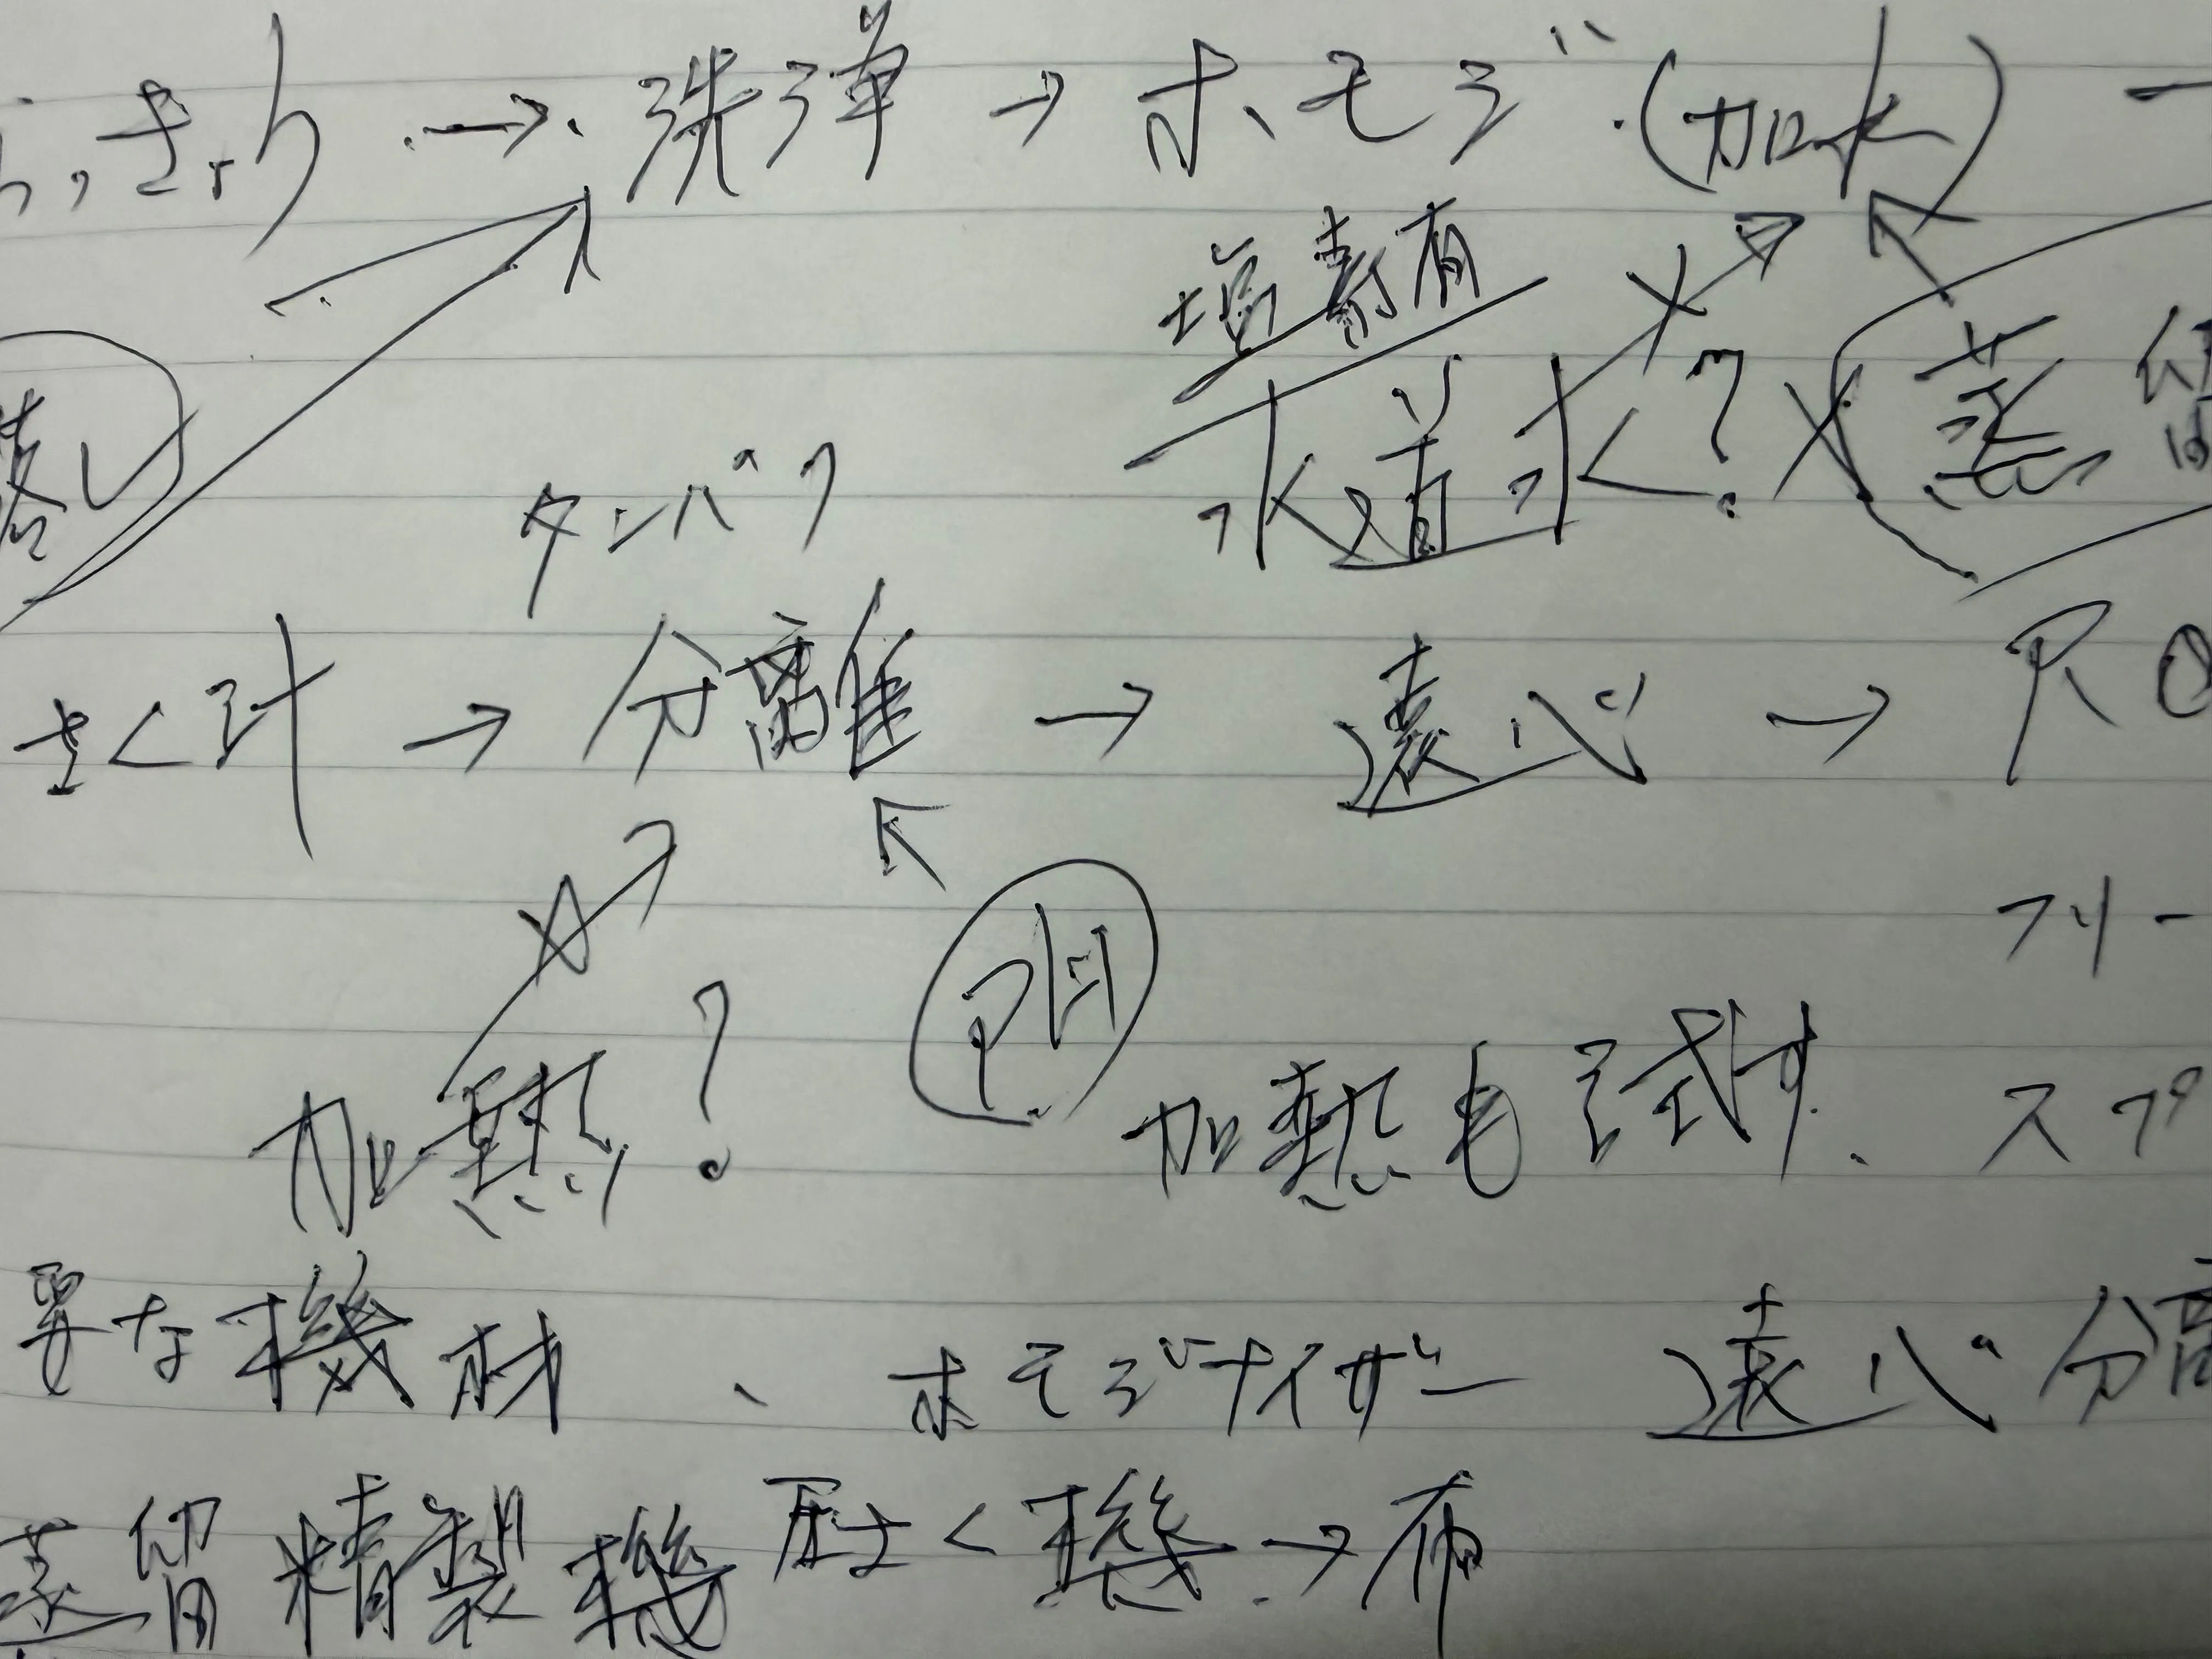 っきょ → 洗浄 → ホモジ (加水) ー
塩素有
水道水? × 蒸留
落し
タンパク
さく汁 → 分離 → 遠心 → RO
PH
フリー
加熱? 加熱も試す、 スプ
要な機材、 ホモジナイザー 遠心分離
蒸留精製機 圧さく機 → 布